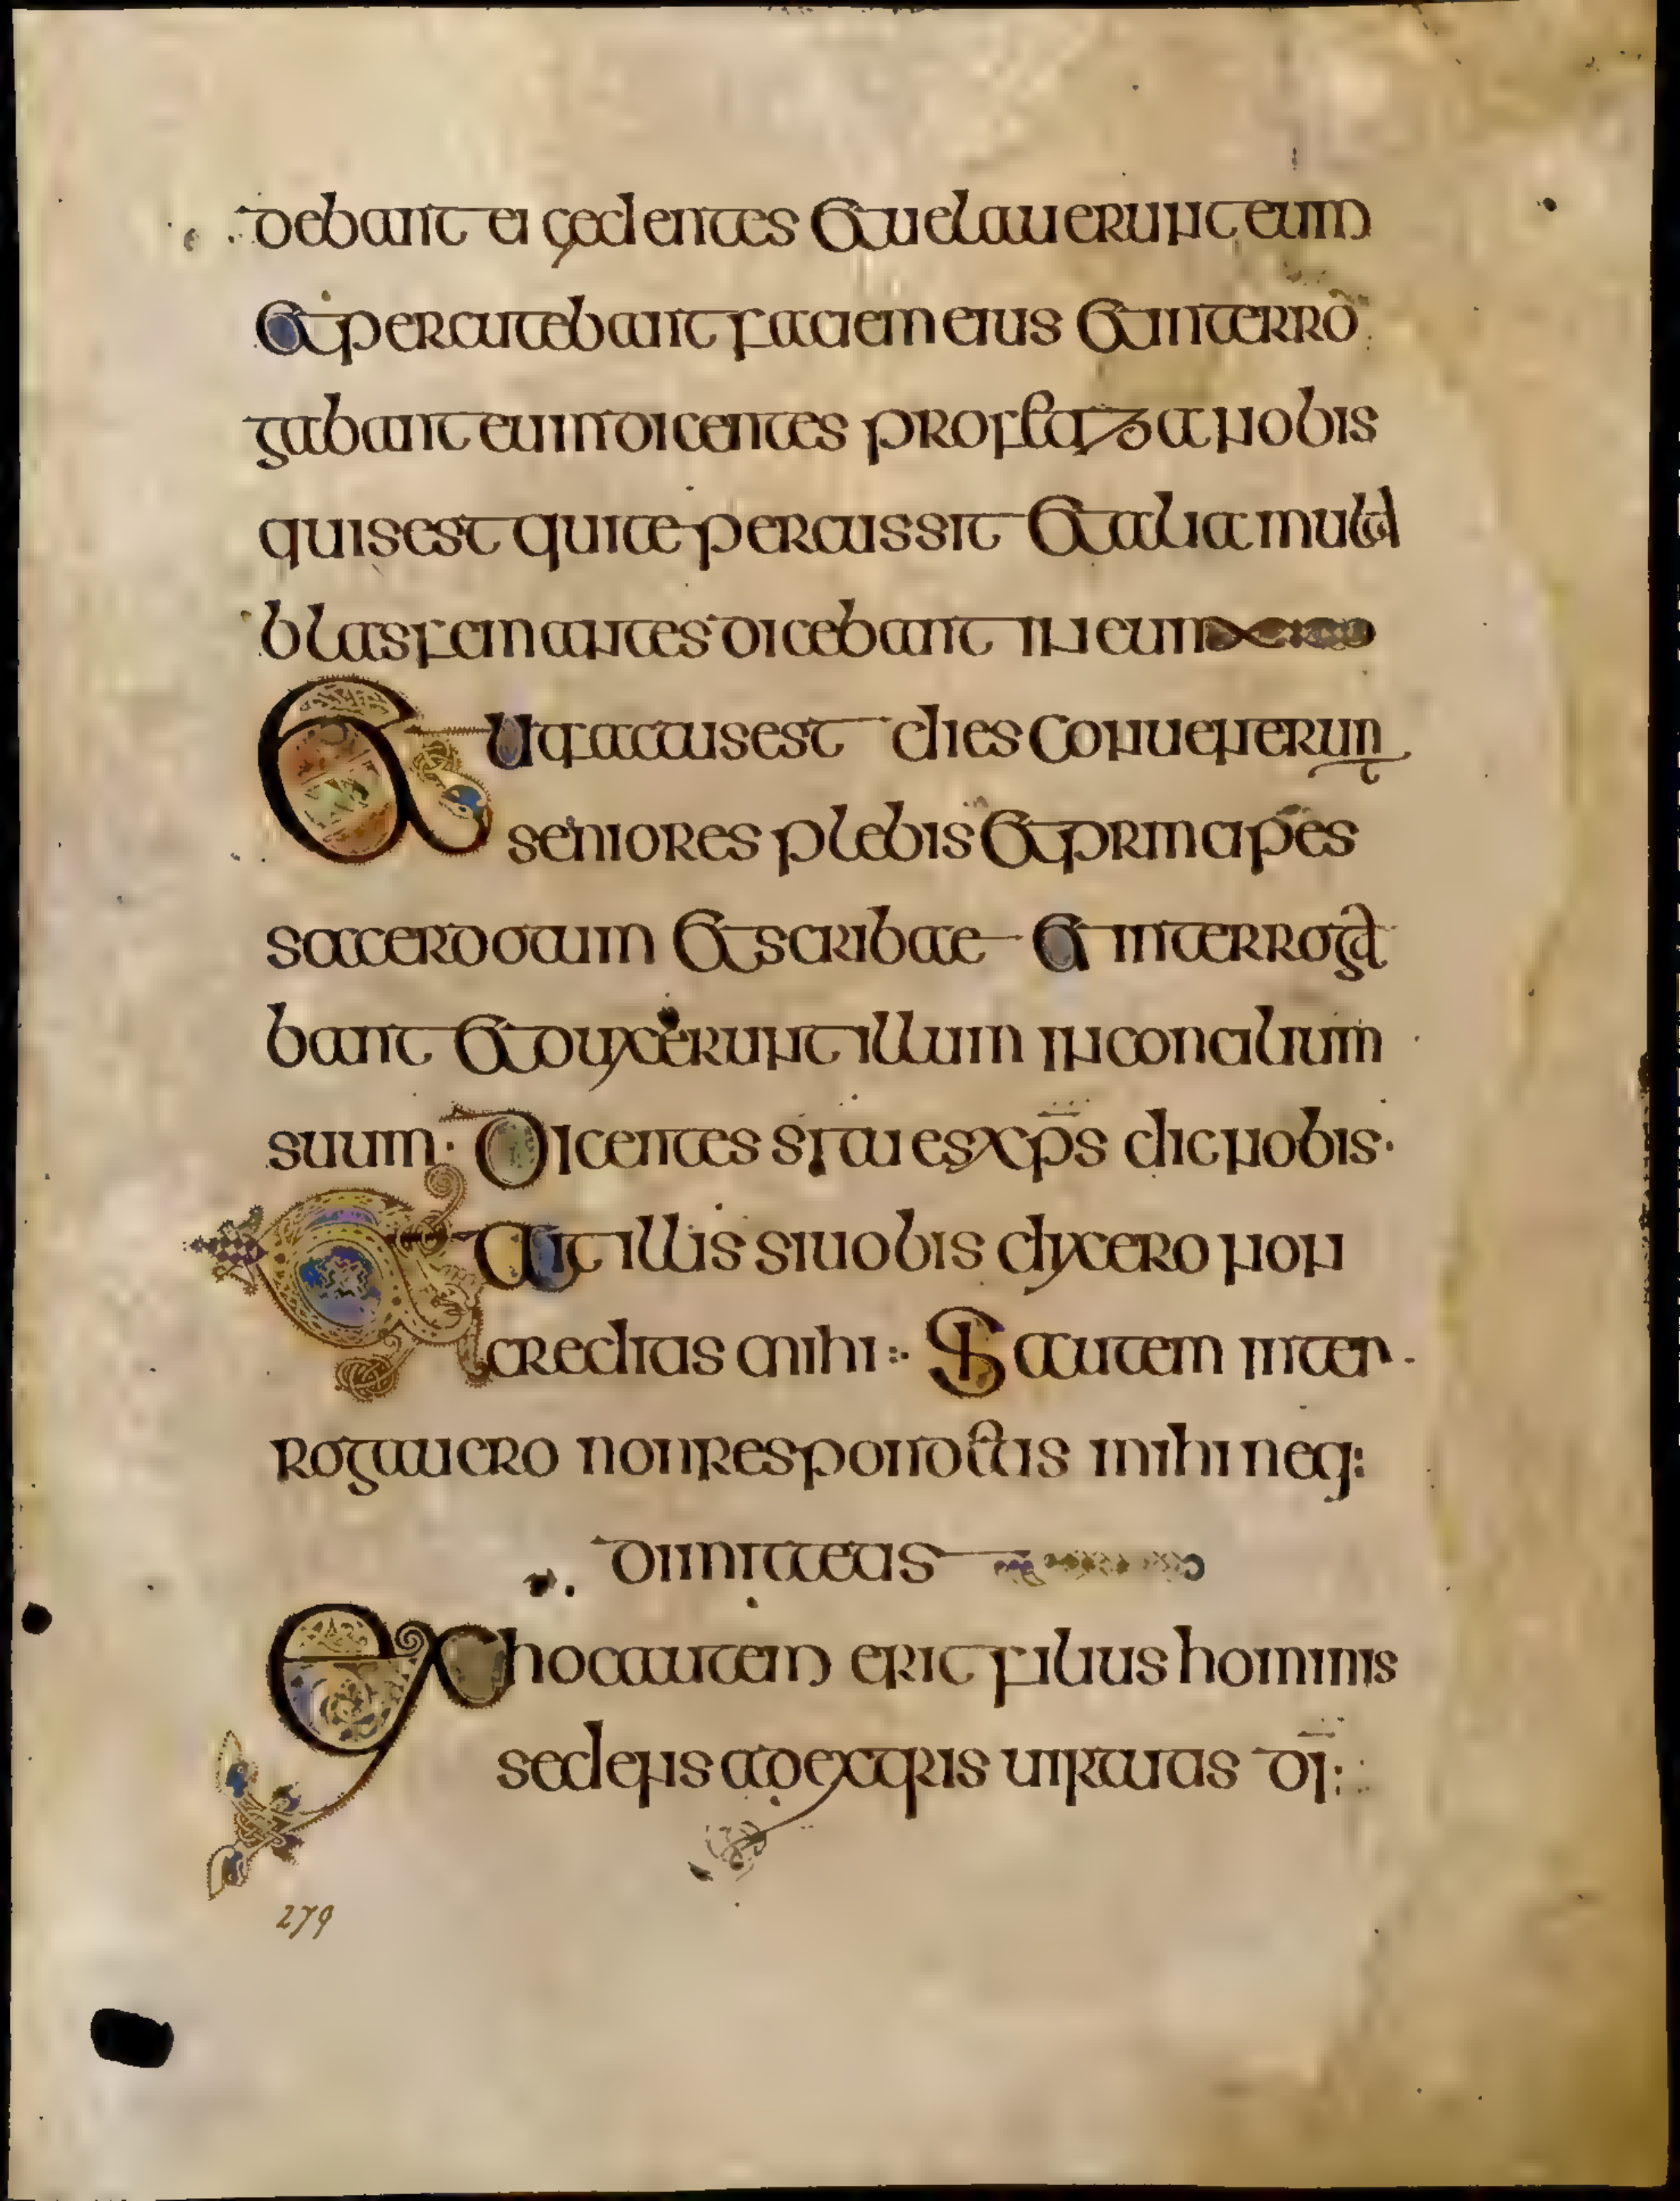 debant ei cedentes et uelauerunt eum
et percutebant faciem eius et interro
gabant eum dicentes profetiza nobis
quis est qui te percussit et alia multa
blasfemantes dicebant in eum
Et ut factus est dies conuenerunt
seniores plebis et principes
sacerdotum et scribae et interroga
bant et duxerunt illum in concilium
suum · Dicentes si tu es xp̄s dic nobis ·
Ait illis si uobis dixero non
creditis mihi :· Si autem inter
rogauero non respondetis mihi neq:
dimittetis
Ex hoc autem erit filius hominis
sedens ad extris uirtutis dī :
279